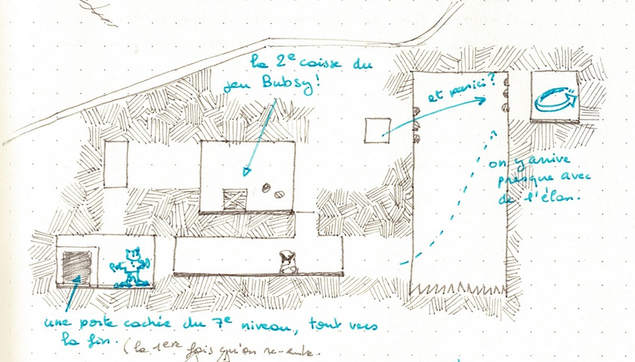 la 2e caisse du
jeu Bubsy!
et par ici?
on y arrive
presque avec
de l'élan.
une porte cachée du 7e niveau, tout vers
la fin. (la 1ere fois qu'on re-entre.